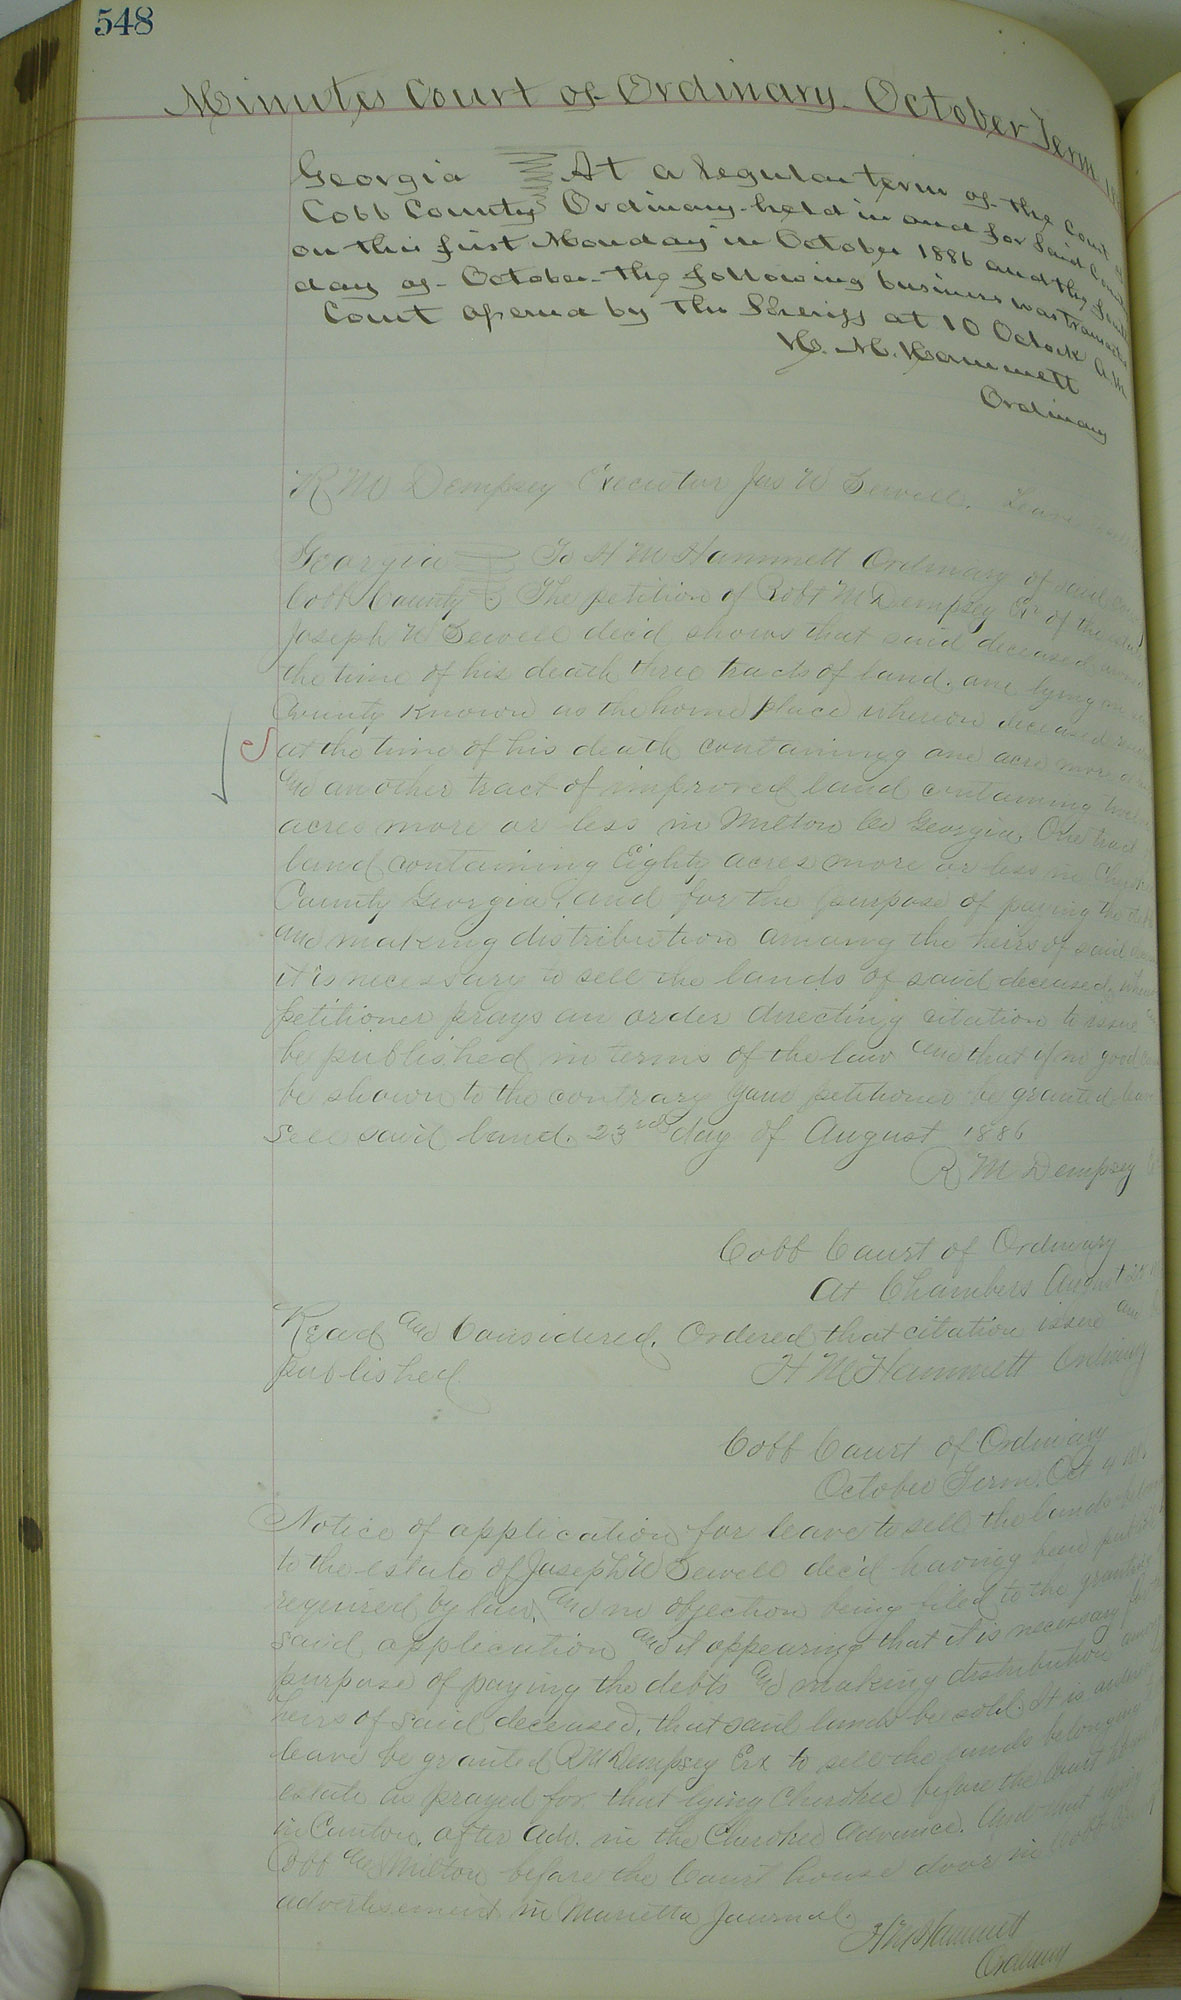 548
Minutes Court of Ordinary. October Term
Georgia At a regular term of the Court of
Cobb County Ordinary held in and for Said County
on this first Monday in October 1886 and the fourth
day of October the following business was transacted
Court opened by the Sheriff at 10 Oclock A.M
H. M. Hammett
Ordinary
R M Dempsey Executor Jas W Sewell. Leave
Georgia To H M Hammett Ordinary of said
Cobb County The petition of Robt M Dempsey Exr of the
Joseph W Sewell dec'd shows that said deceased
the time of his death three tracts of land. one lying
County known as the home place whereon deceased
at the time of his death containing one acre more
and another tract of improved land containing
acres more or less in Milton Co Georgia. One tract
land containing Eighty acres more or less in
County Georgia, and for the purpose of paying the
and making distribution among the heirs of said
it is necessary to sell the lands of said deceased,
petitioner prays an order directing citation to issue
be published in terms of the law and that if no good
be shown to the contrary your petitioner be granted
sell said land. 23rd day of August 1886
R M Dempsey
Cobb Court of Ordinary
At Chambers August
Read and Considered. Ordered that citation issue and
published. H M Hammett Ordinary
Cobb Court of Ordinary
October Term. Oct 4
Notice of application for leave to sell the lands
to the estate of Joseph W Sewell dec'd having been
required by law, and no objection being filed to the granting
said application and it appearing that it is necessary for
purpose of paying the debts and making distribution among
heirs of said deceased, that said lands be sold. It is
leave be granted R M Dempsey Exr to sell the lands belonging
estate as prayed for. that lying Cherokee before the Court
in Canton, after adv. in the Cherokee Advance. And that lying
Cobb and Milton before the Court house door in Cobb
advertisement in Marietta Journal.
H M Hammett
Ordinary